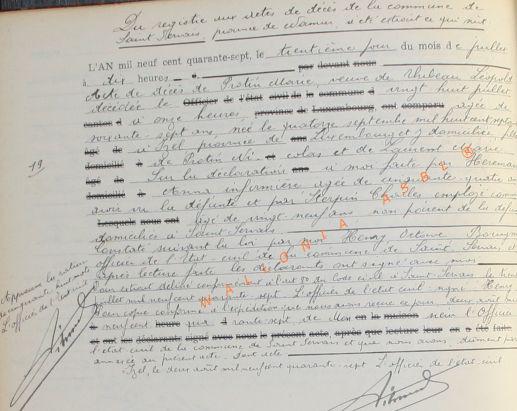 Du registre aux actes de décès de la commune de
Saint Servais, province de Namur, a été extrait ce qui suit
L'AN mil neuf cent quarante-sept, le trentième jour du mois de juillet
à dix heures par devant nous
Acte de décès de Protin Marie, veuve de Thibeau Léopold
décédée le Officier de l'état civil de la commune d vingt huit juillet
à onze heures, province de Luxembourg, ont comparu âgée de
soixante-sept ans, née le quatorze septembre mil huit cent septante
âgé de à Izel province de ans Luxembourg et y domiciliée fille
domicilié à de Protin Ni- et colas et de Laurent Marie
19 âgé de Sur la déclaration ans à moi faite par
domicilié à Anna infirmière âgée de cinquante-quatre ans
avoir vu la défunte et par Charles employé
Lesquels nous ont âgé de vingt-neuf ans non parent de la
domiciliée à Saint-Servais.
Constaté suivant la loi par moi Henry Octave
officier de l'Etat-civil de la commune de Saint Servais, et
après lecture faite les déclarants ont signé avec moi
Pour extrait délivré conforme à Saint-Servais, le
juillet mil neuf cent quarante-sept. L'officier de l'état civil signé Henry
Pour copie conforme à l'expédition que nous avons reçue ce jour, deux août mil
neufcent heure que quarante sept de Mon en la maison sieur l'Officier
et ont les déclarants signé avec nous le présent acte, après que lecture leur en a été faite
l'état civil de la commune de Saint Servais et que nous avons
annexée au présent acte. Dont acte
Izel, le deux août mil neufcent quarante-sept L'officier de l'état-civil
Approuvé la rature
de cinquante huit mots
L'officier de l'état civil
WALLONIA ASBL ®